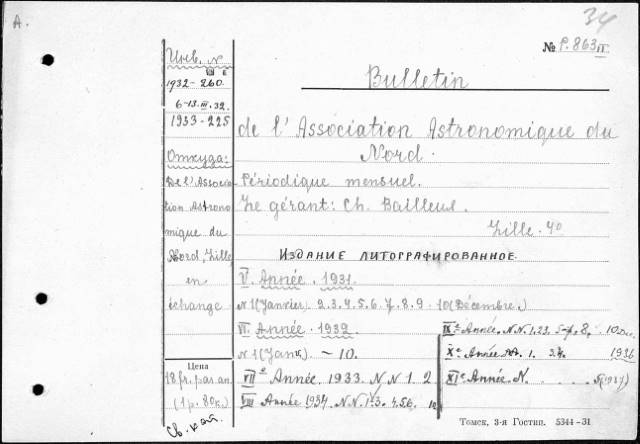 A.
34
№ P. 863 IV
Инв. N
1932-260
6-13.III.32.
1933-225
Откуда:
De l'Associa
tion Astrono
mique du
Nord, Lille
en
échange
Цена
18 fr. par an.
(1 р. 80к.)
Св. кат.
Bulletin
de l'Association Astronomique du
Nord.
Périodique mensuel.
Le gérant: Ch. Bailleul.
Lille. 40
ИЗДАНИЕ ЛИТОГРАФИРОВАННОЕ
V. Année. 1931.
N 1 (Janvier) 2. 3. 4. 5. 6. 7. 8. 9. 10 (Décembre.)
VI. Année. 1932.
N 1 (Janv.) ~ 10.
VII e Année. 1933. N N 1. 2
VIII Année 1934. N. N. 1. 3. 4. 5 6. 10
IX e Année. N. N. 1. 23. 5-7. 8. 10
X e Année 1. 1936
XI e Année. N. (1937)
Томск, 3-я Гостип. 5344-31